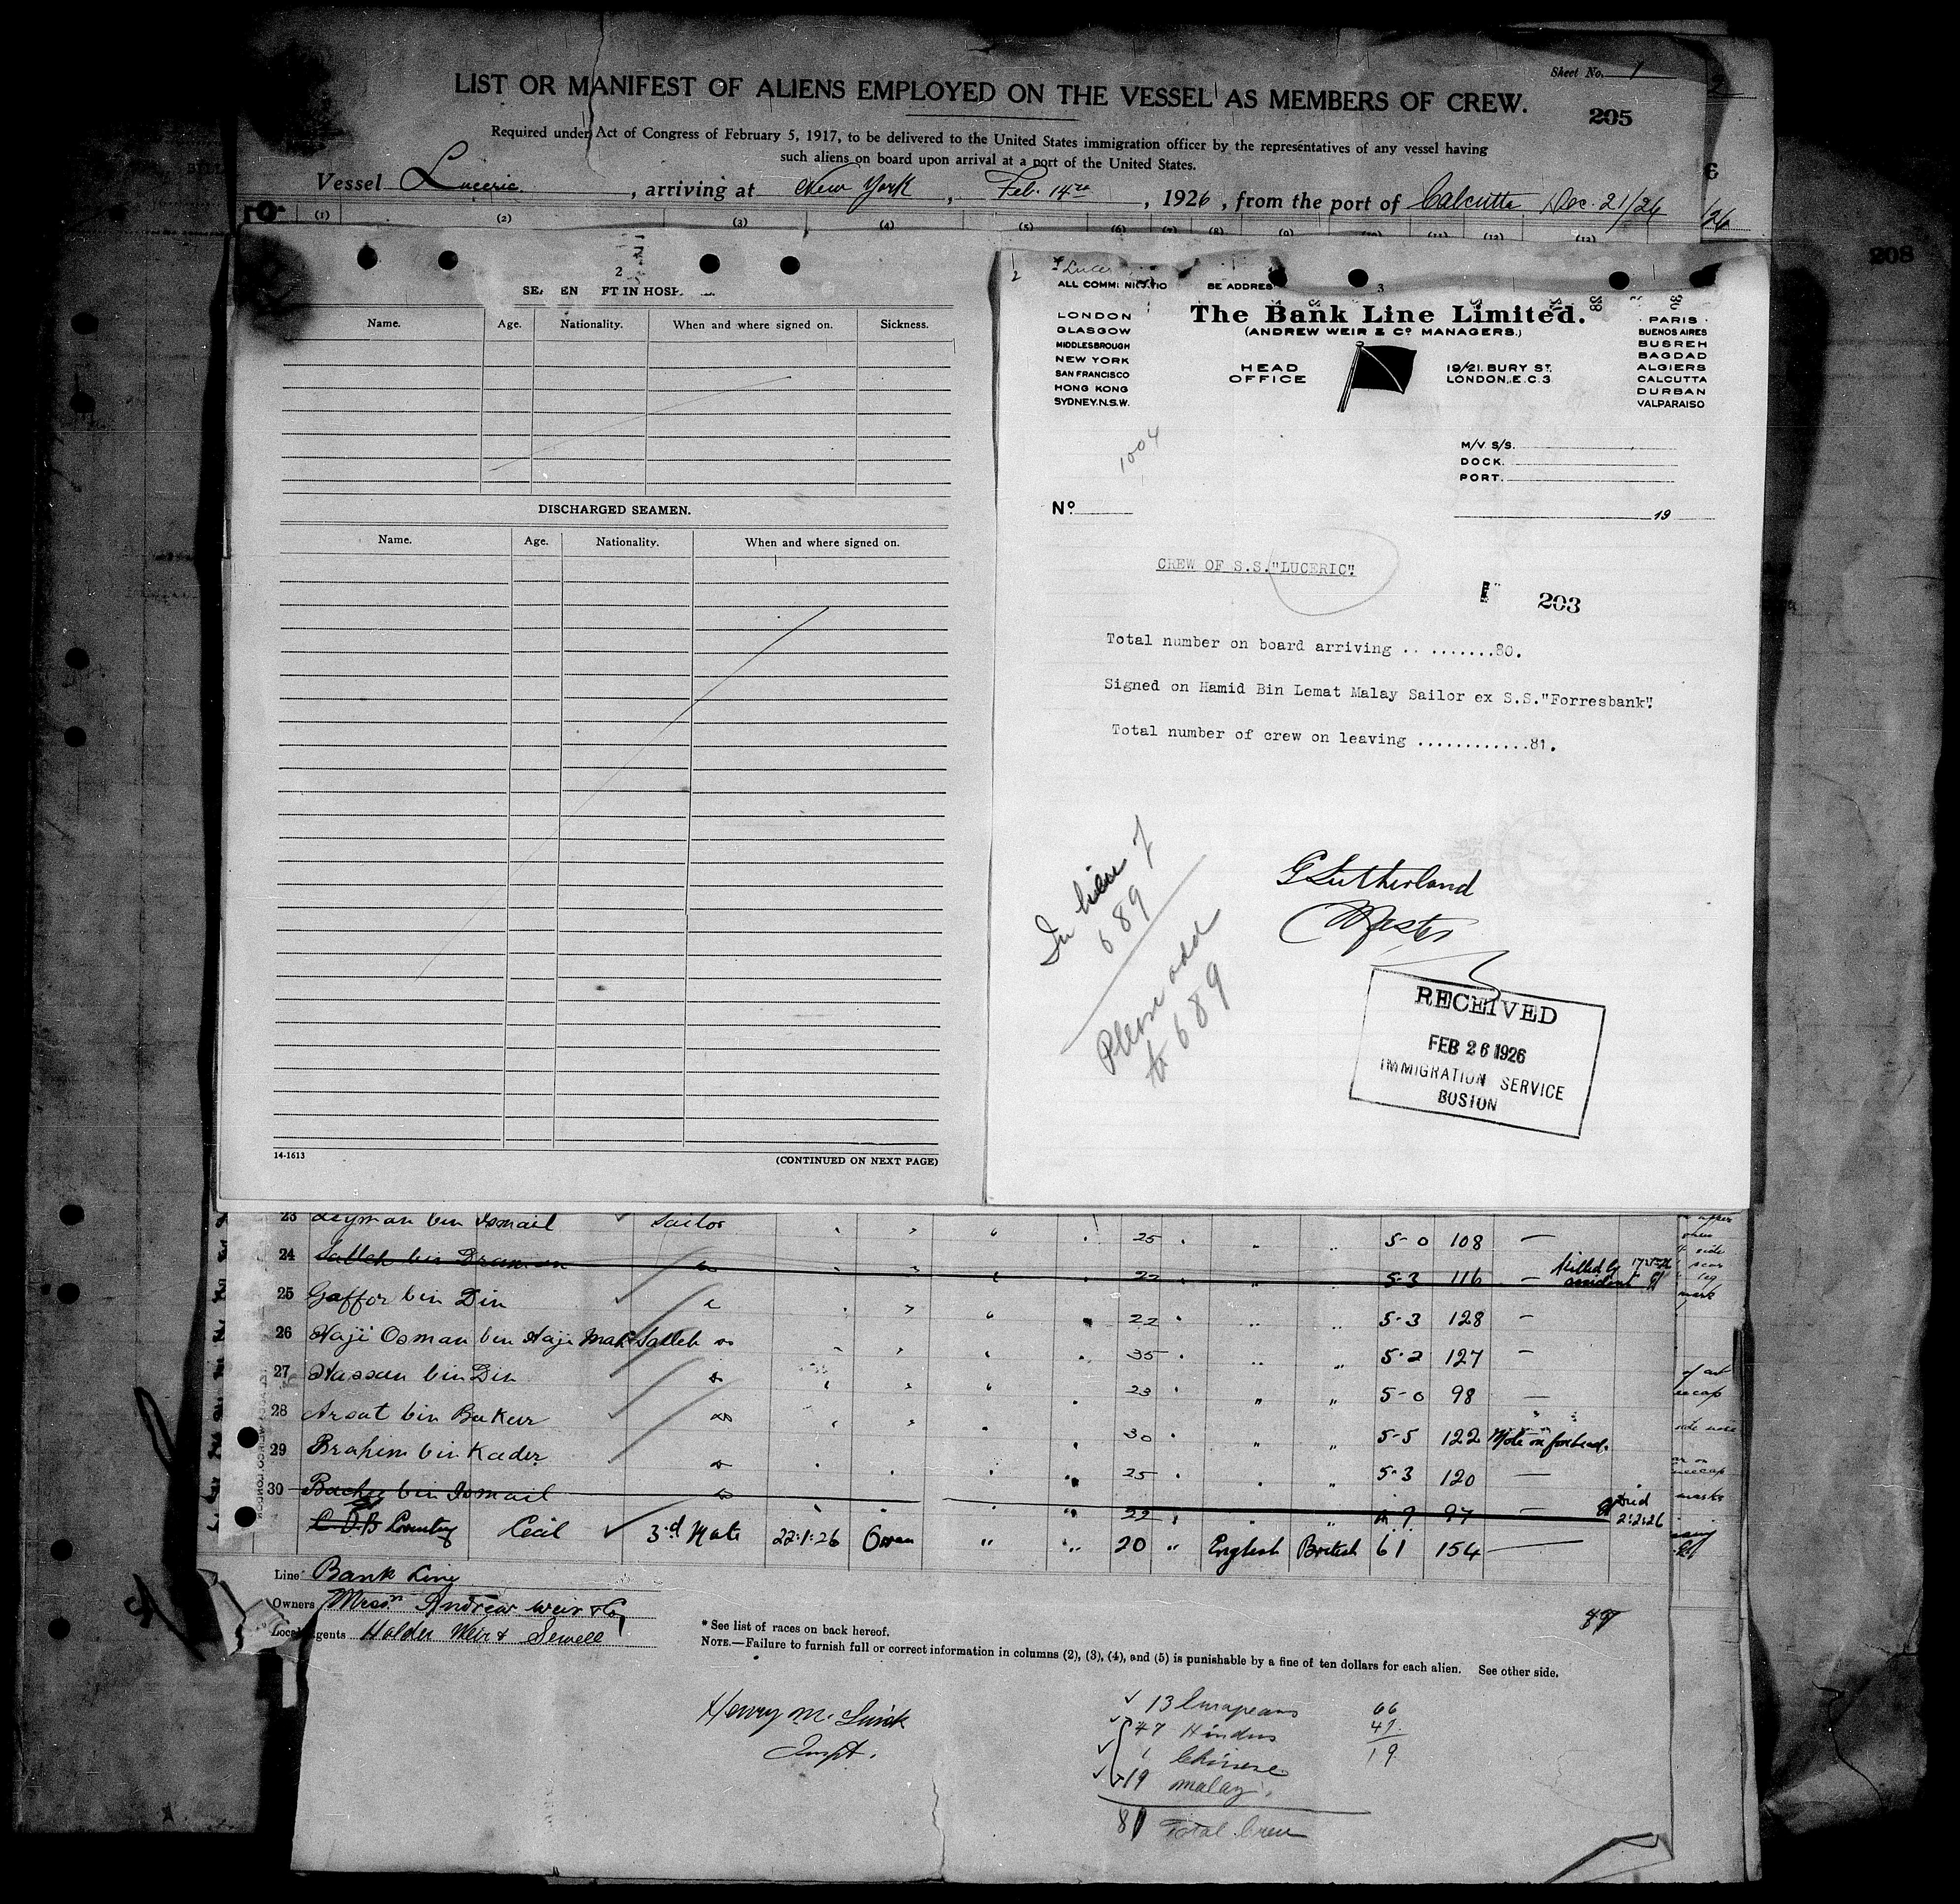 Sheet No. 1
LIST OR MANIFEST OF ALIENS EMPLOYED ON THE VESSEL AS MEMBERS OF CREW.
205
Required under Act of Congress of February 5, 1917, to be delivered to the United States immigration officer by the representatives of any vessel having
such aliens on board upon arrival at a port of the United States.
Vessel Luceric, arriving at New York, Feb. 14th, 1926, from the port of Calcutta Dec. 21/26
/26
(1) (2) (3) (4) (5) (6) (7) (8) (9) (10) (11) (12) (13)
208
2
Name. Age. Nationality. When and where signed on. Sickness.
DISCHARGED SEAMEN.
Name. Age. Nationality. When and where signed on.
14-1613 (CONTINUED ON NEXT PAGE)
2
3
The Bank Line Limited.
(ANDREW WEIR & Co MANAGERS.)
LONDON
GLASGOW
MIDDLESBROUGH
NEW YORK
SAN FRANCISCO
HONG KONG
SYDNEY.N.S.W.
HEAD
OFFICE
19/21. BURY ST.
LONDON,.E.C.3.
PARIS
BUENOS AIRES
BUSREH
BAGDAD
ALGIERS
CALCUTTA
DURBAN
VALPARAISO
1004
M/V S/S.
DOCK.
PORT.
No
19
CREW OF S.S."LUCERIC".
203
Total number on board arriving .. .......80.
Signed on Hamid Bin Lemat Malay Sailor ex S.S."Forresbank".
Total number of crew on leaving ............81.
In lieu of
689
Please add
to 689
G Sutherland
Master
RECEIVED
FEB 26 1926
IMMIGRATION SERVICE
BOSTON
23 Leyman bin Ismail Sailor 25 5-0 108 —
24 Salleh bin 22 5-3 116 — Killed by accident
25 Gaffor bin Din 22 5-3 128 —
26 Haji Osman bin Haji Mat Salleh 35 5-2 127 —
27 Hassan bin Din 23 5-0 98 —
28 Arsat bin Bakar 30 5-5 122 Mole on forehead.
29 Brahim bin Kader 25 5-3 120 —
30 bin Ismail 22 97 — Died 2:2:26
Cecil 3rd Mate 22:1:26 Oran 20 English British 6 1 154
Line Bank Line
Owners Messrs Andrew Weir & Co
Local Agents Holder Weir & Sewell
* See list of races on back hereof.
NOTE.—Failure to furnish full or correct information in columns (2), (3), (4), and (5) is punishable by a fine of ten dollars for each alien. See other side.
Henry
Inspt.
13 Europeans
47 Hindus
1 Chinese
19 malay
81 Total Crew
66
47
19